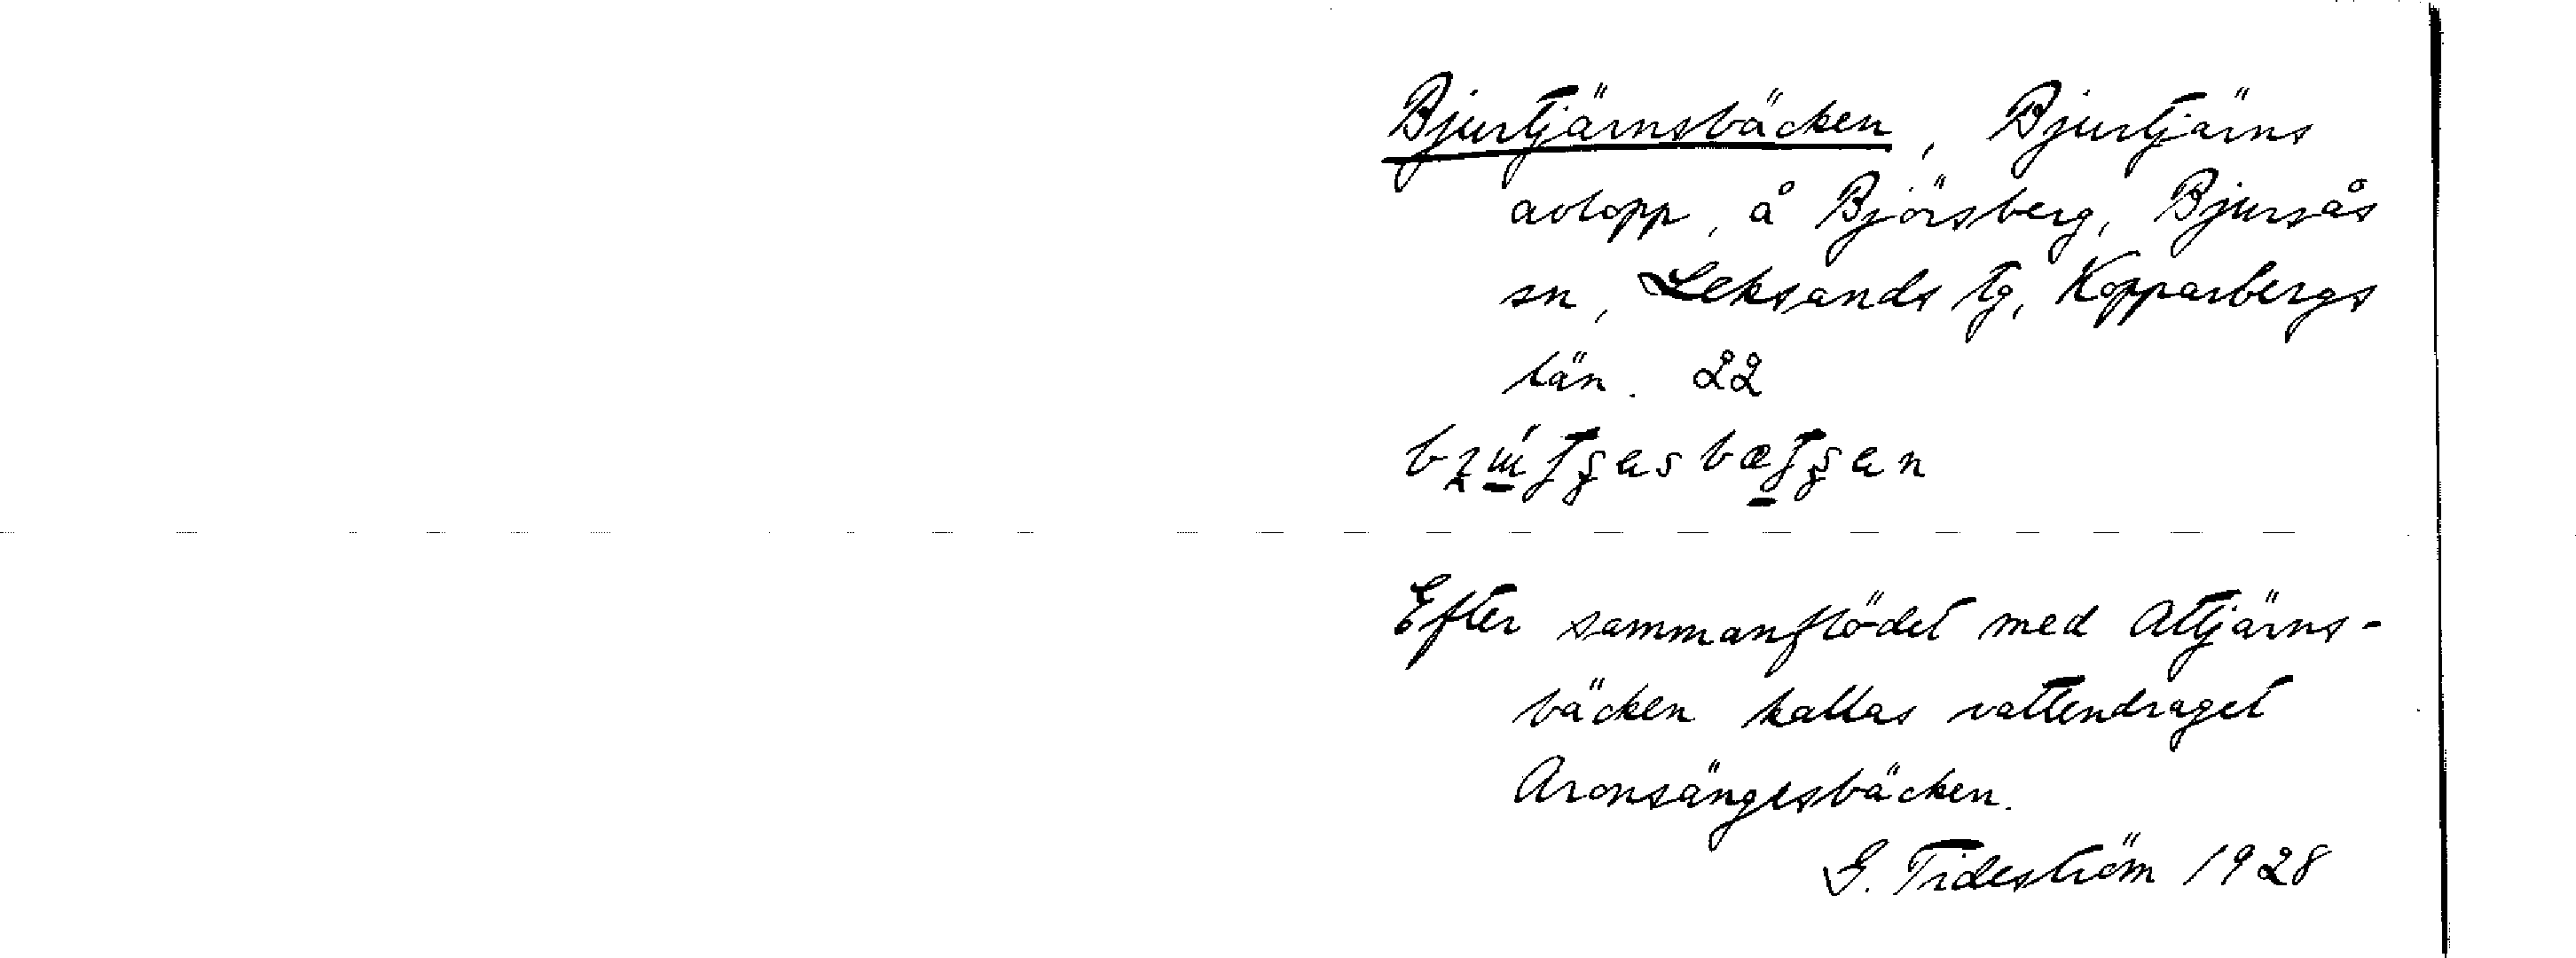 Bjurtjärnsbäcken, Bjurtjärns
avlopp, å Björsberg, Bjursås
sn, Leksands tg, Kopparbergs
län. 22
Efter sammanflödet med Attjärns-
bäcken kallas vattendraget
Aronsängesbäcken.
G. Tideström 1928